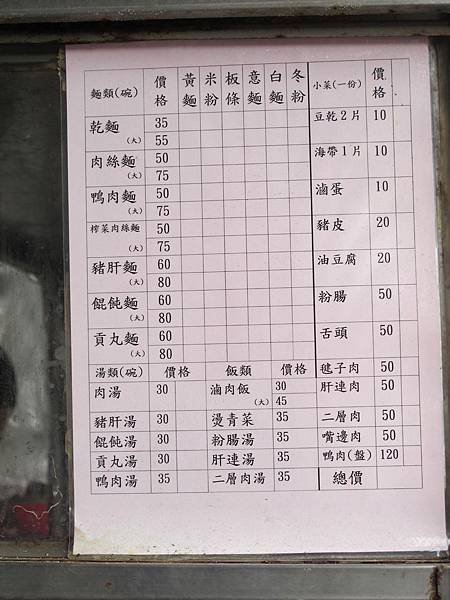 麵類(碗) 價格 黃麵 米粉 板條 意麵 白麵 冬粉 小菜(一份) 價格
乾麵 35 豆乾2片 10
(大) 55
肉絲麵 50 海帶1片 10
(大) 75
鴨肉麵 50 滷蛋 10
(大) 75
榨菜肉絲麵 50 豬皮 20
(大) 75
豬肝麵 60 油豆腐 20
(大) 80
餛飩麵 60 粉腸 50
(大) 80
貢丸麵 60 舌頭 50
(大) 80
湯類(碗) 價格 飯類 價格 毽子肉 50
肉湯 30 滷肉飯 30 肝連肉 50
(大) 45
豬肝湯 30 燙青菜 35 二層肉 50
餛飩湯 30 粉腸湯 35 嘴邊肉 50
貢丸湯 30 肝連湯 35 鴨肉(盤) 120
鴨肉湯 35 二層肉湯 35 總價